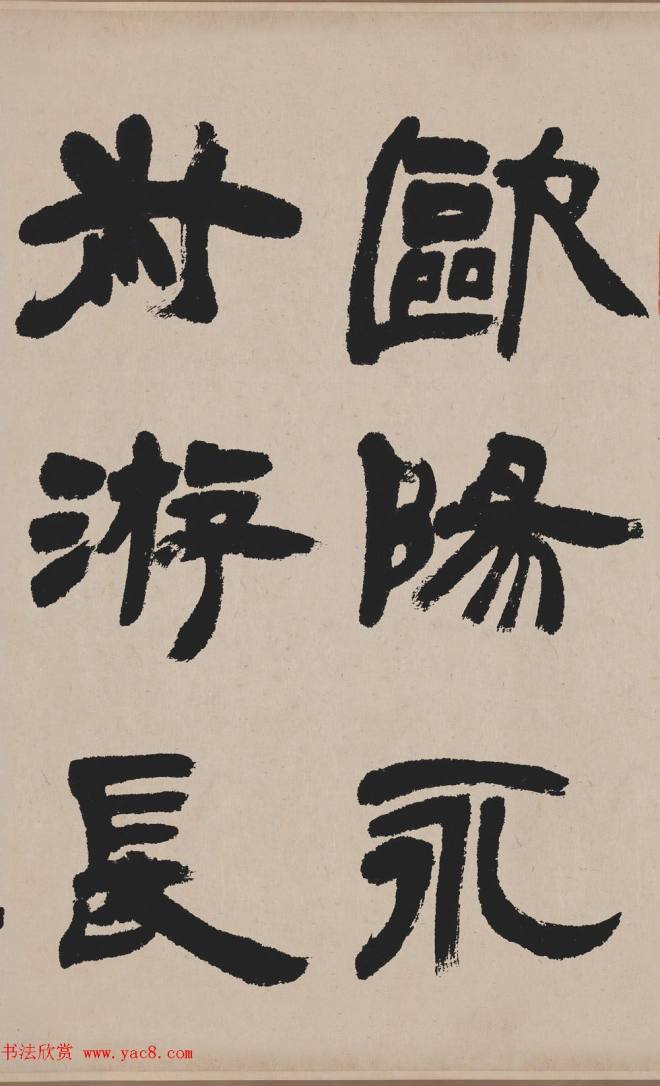 歐陽永
叔游長
书法欣赏 www.yac8.com